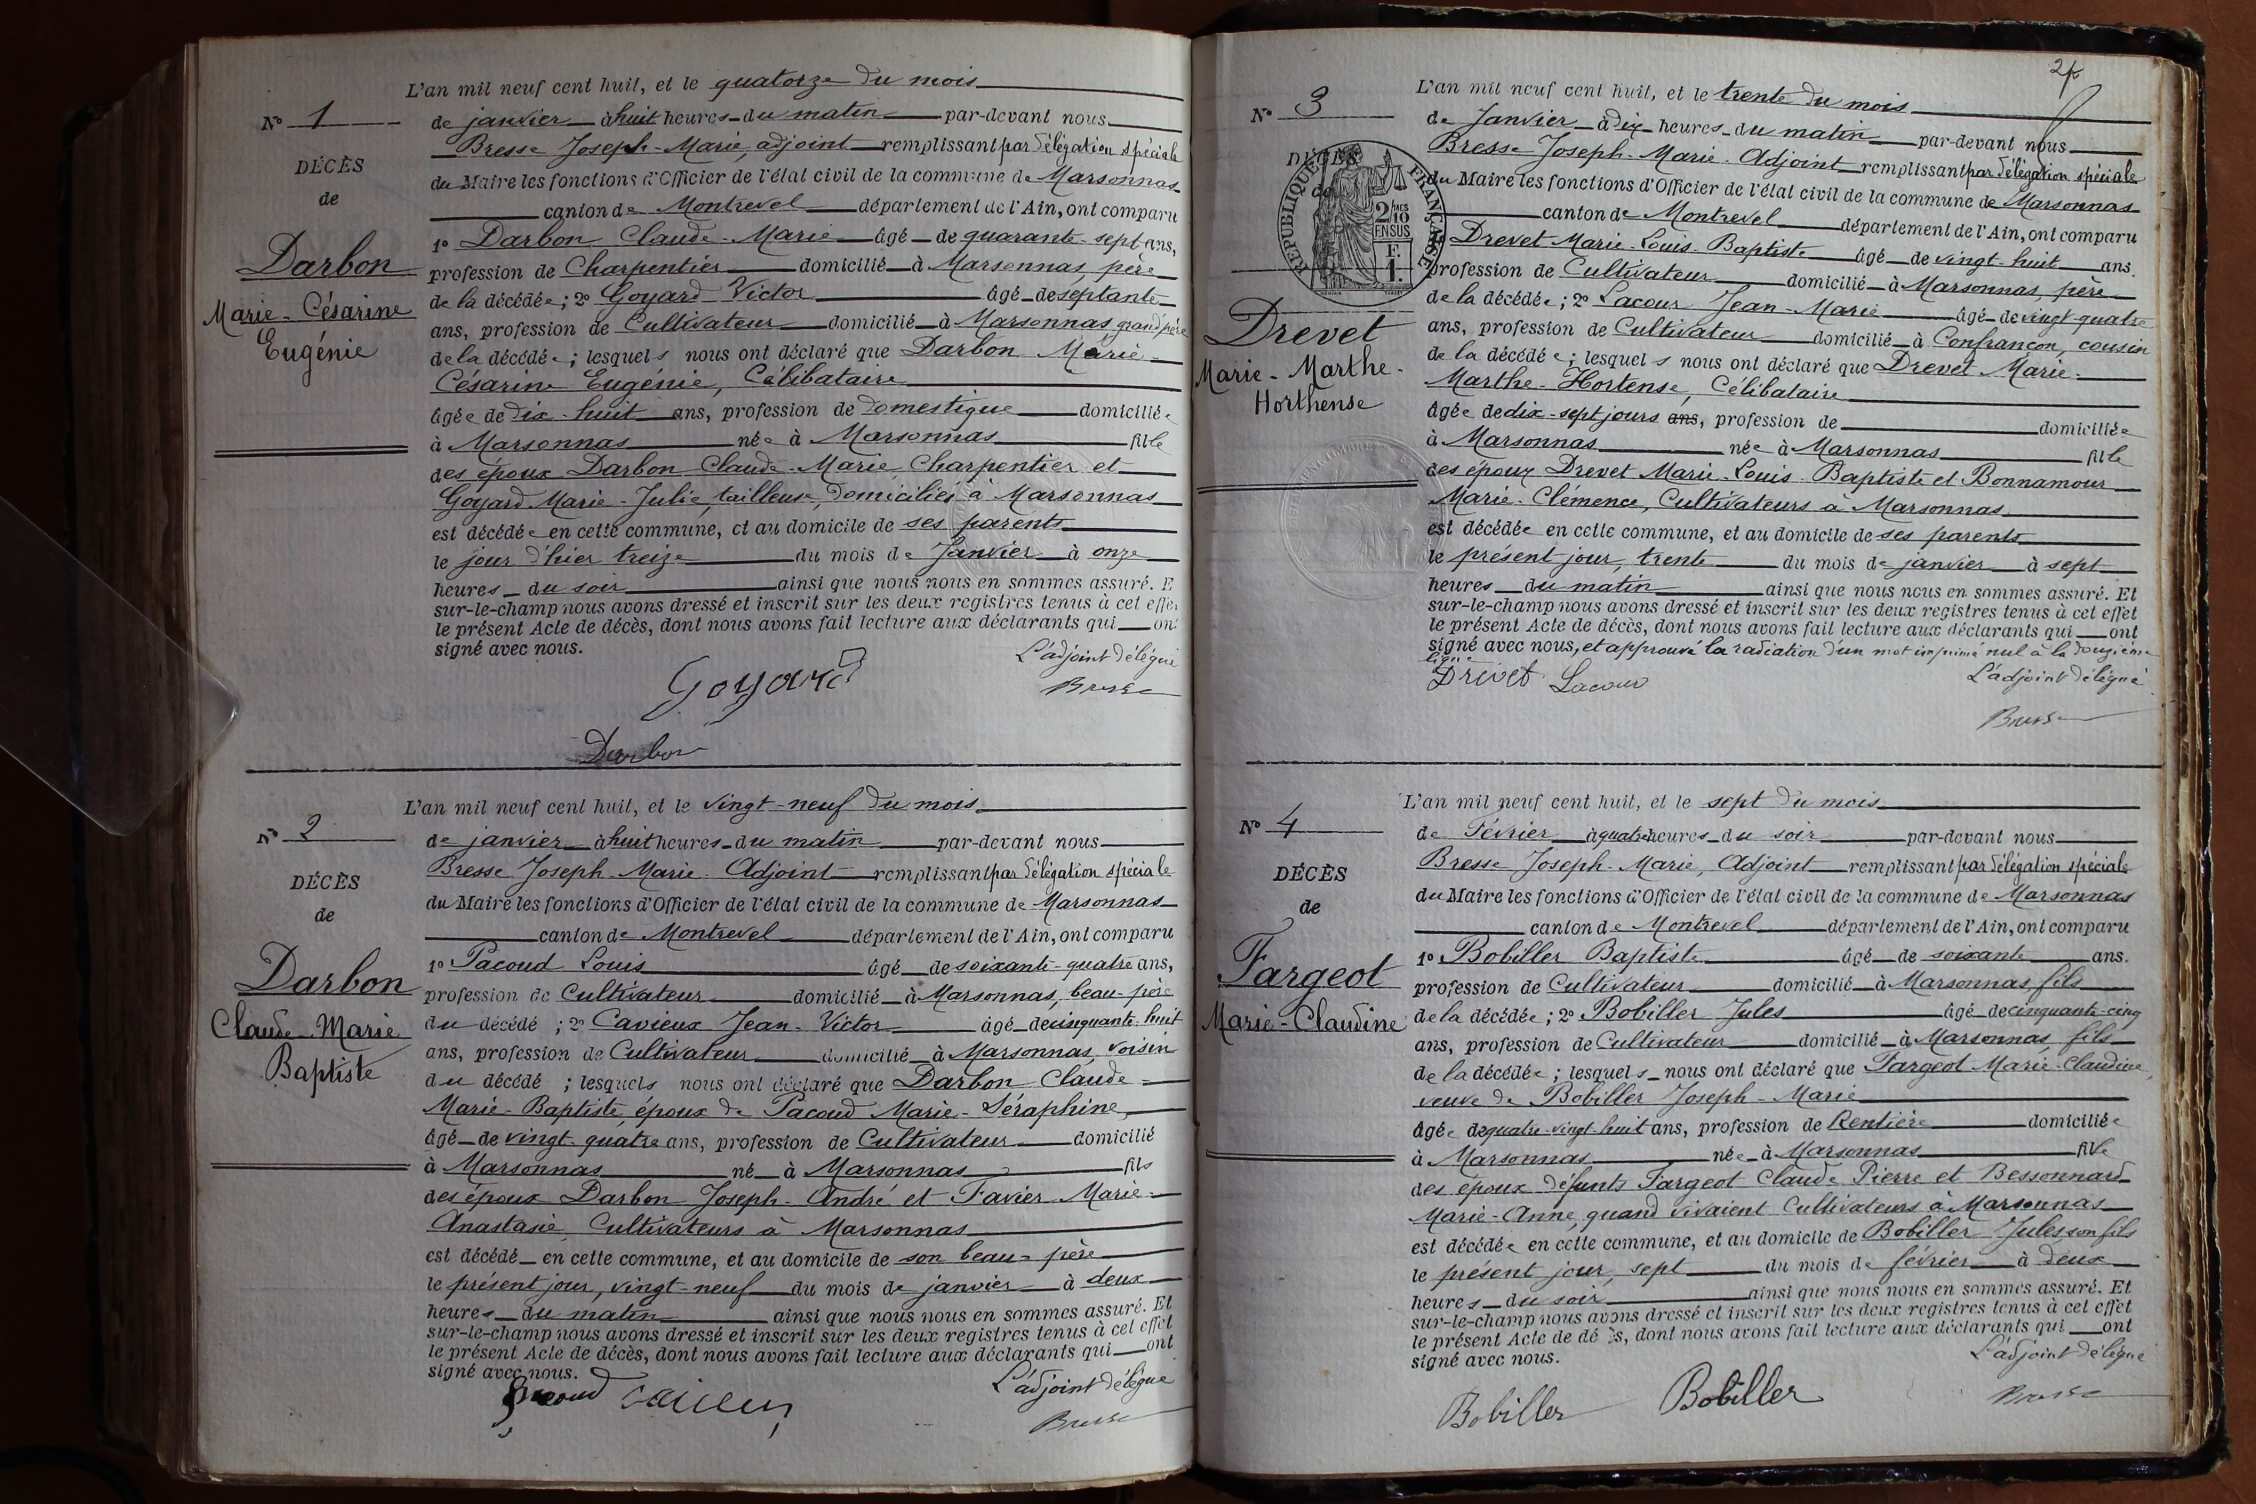 L'an mil neuf cent huit, et le quatorze du mois
N° 1
de janvier à huit heures du matin par-devant nous
Bresse Joseph-Marie, adjoint remplissant par délégation spéciale
DÉCÈS
du Maire les fonctions d'Officier de l'état civil de la commune de Marsonnas
de
canton de Montrevel département de l'Ain, ont comparu
1° Darbon Claude-Marie âgé de quarante-sept ans,
Darbon
profession de Charpentier domicilié à Marsonnas, père
de la décédée; 2° Goyard Victor âgé de septante
Marie-Césarine
ans, profession de Cultivateur domicilié à Marsonnas grand père
Eugénie
de la décédée; lesquels nous ont déclaré que Darbon Marie-
Césarine Eugénie, Célibataire
âgée de dix-huit ans, profession de domestique domiciliée
à Marsonnas née à Marsonnas fille
des époux Darbon Claude-Marie Charpentier et
Goyard Marie-Julie, tailleuse, domiciliés à Marsonnas
est décédée en cette commune, et au domicile de ses parents
le jour d'hier treize du mois de Janvier à onze
heures du soir ainsi que nous nous en sommes assuré. E
sur-le-champ nous avons dressé et inscrit sur les deux registres tenus à cet effet
le présent Acte de décès, dont nous avons fait lecture aux déclarants qui ont
signé avec nous.
L'adjoint délégué
Goyard
Bresse
Darbon
L'an mil neuf cent huit, et le vingt-neuf du mois
N° 2
de janvier à huit heures du matin par-devant nous
Bresse Joseph-Marie-Adjoint remplissant par délégation spéciale
DÉCÈS
du Maire les fonctions d'Officier de l'état civil de la commune de Marsonnas
de
canton de Montrevel département de l'Ain, ont comparu
1° Pacoud Louis âgé de soixante-quatre ans,
Darbon
profession de Cultivateur domicilié à Marsonnas, beau-père
Claude-Marie
du décédé; 2° Cavieux Jean-Victor âgé de cinquante-huit
ans, profession de Cultivateur domicilié à Marsonnas, voisin
Baptiste
du décédé; lesquels nous ont déclaré que Darbon Claude-
Marie-Baptiste, époux de Pacoud Marie-Séraphine,
âgé de vingt-quatre ans, profession de Cultivateur domicilié
à Marsonnas né à Marsonnas fils
des époux Darbon Joseph-André et Favier Marie-
Anastasie, Cultivateurs à Marsonnas
est décédé en cette commune, et au domicile de son beau-père
le présent jour, vingt-neuf du mois de janvier à deux
heures du matin ainsi que nous nous en sommes assuré. Et
sur-le-champ nous avons dressé et inscrit sur les deux registres tenus à cet effet
le présent Acte de décès, dont nous avons fait lecture aux déclarants qui ont
signé avec nous.
L'adjoint délégué
Pacoud
Bresse
2
L'an mil neuf cent huit, et le trente du mois
N° 3
de Janvier à dix heures du matin par-devant nous
Bresse Joseph-Marie-Adjoint remplissant par délégation spéciale
DÉCÈS
de
RÉPUBLIQUE FRANÇAISE
2/10 EN SUS
F. 1.
du Maire les fonctions d'Officier de l'état civil de la commune de Marsonnas
canton de Montrevel département de l'Ain, ont comparu
Drevet Marie-Louis-Baptiste âgé de vingt-huit ans.
profession de Cultivateur domicilié à Marsonnas, père
de la décédée; 2° Lacour Jean-Marie âgé de vingt-quatre
Drevet
ans, profession de Cultivateur domicilié à Confrançon, cousin
Marie-Marthe-
de la décédée; lesquels nous ont déclaré que Drevet Marie-
Horthense
Marthe-Hortense, Célibataire
âgée de dix-sept jours ans, profession de domiciliée
à Marsonnas née à Marsonnas fille
des époux Drevet Marie-Louis-Baptiste et Bonnamour
Marie-Clémence, Cultivateurs à Marsonnas
est décédée en cette commune, et au domicile de ses parents
le présent jour, trente du mois de janvier à sept
heures du matin ainsi que nous nous en sommes assuré. Et
sur-le-champ nous avons dressé et inscrit sur les deux registres tenus à cet effet
le présent Acte de décès, dont nous avons fait lecture aux déclarants qui ont
signé avec nous, et approuvé la radiation d'un mot imprimé nul à la douzième
ligne
L'adjoint délégué
Drevet Lacour
Bresse
L'an mil neuf cent huit, et le sept du mois
N° 4
de Février à quatre heures du soir par-devant nous
Bresse Joseph-Marie, Adjoint remplissant par délégation spéciale
DÉCÈS
du Maire les fonctions d'Officier de l'état civil de la commune de Marsonnas
de
canton de Montrevel département de l'Ain, ont comparu
1° Bobiller Baptiste âgé de soixante ans.
Fargeot
profession de Cultivateur domicilié à Marsonnas, fils
Marie-Claudine
de la décédée; 2° Bobiller Jules âgé de cinquante-cinq
ans, profession de Cultivateur domicilié à Marsonnas, fils
de la décédée; lesquels nous ont déclaré que Fargeot Marie-Claudine,
veuve de Bobiller Joseph-Marie
âgée de quatre-vingt-huit ans, profession de Rentière domiciliée
à Marsonnas née à Marsonnas fille
des époux défunts Fargeot Claude Pierre et Bessonnard
Marie-Anne, quand vivaient Cultivateurs à Marsonnas
est décédée en cette commune, et au domicile de Bobiller Jules son fils
le présent jour, sept du mois de février à deux
heures du soir ainsi que nous nous en sommes assuré. Et
sur-le-champ nous avons dressé et inscrit sur les deux registres tenus à cet effet
le présent Acte de décès, dont nous avons fait lecture aux déclarants qui ont
signé avec nous.
L'adjoint délégué
Bobiller Bobiller
Bresse